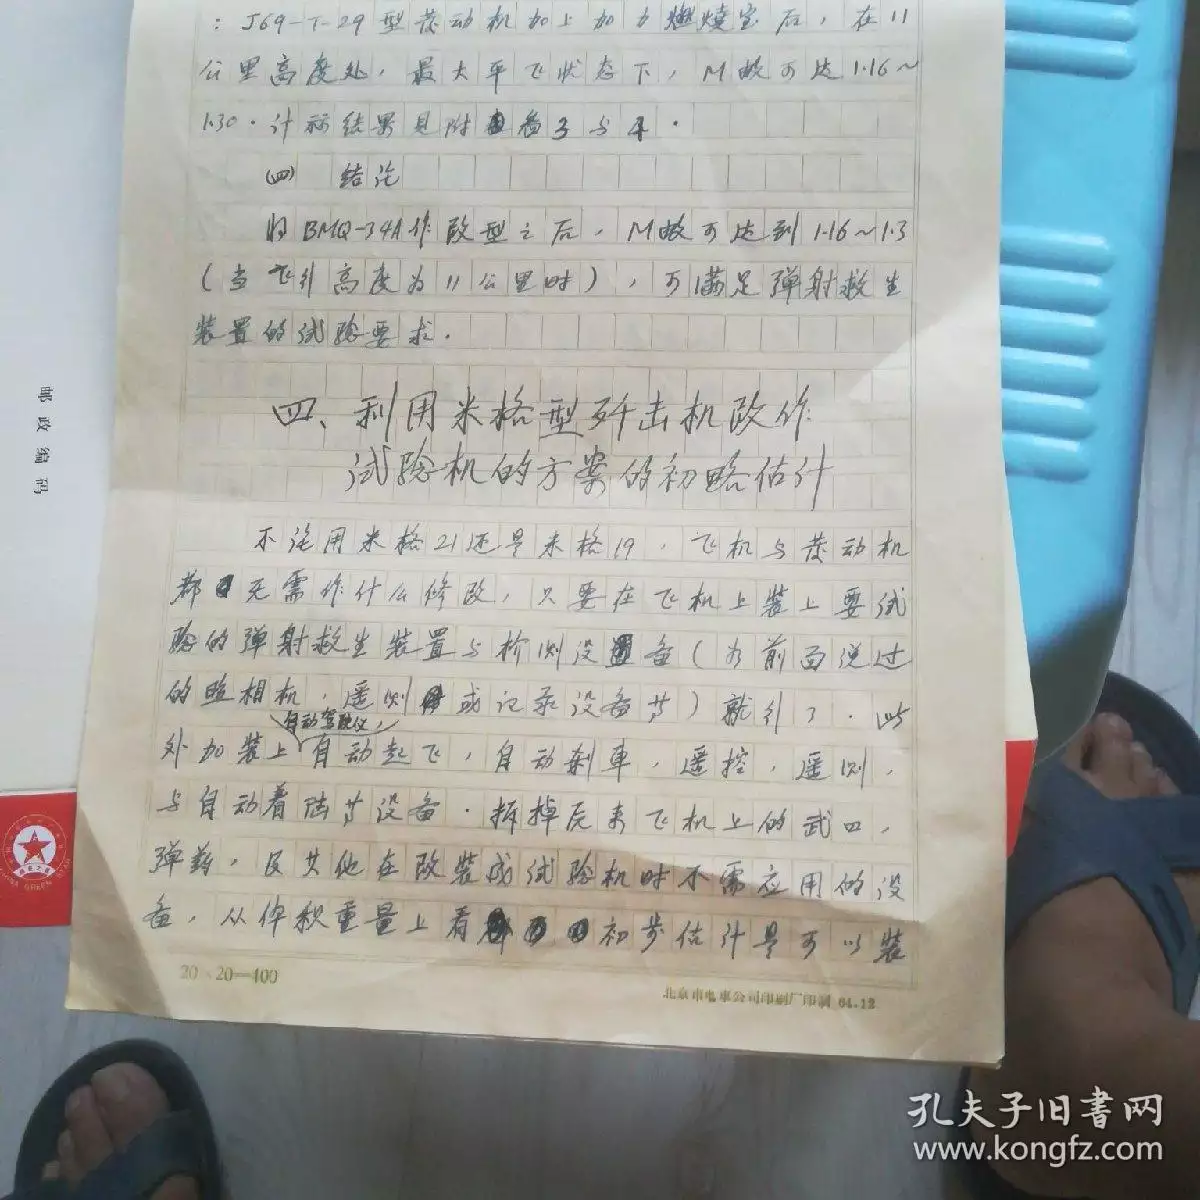 ：J69-T-29型发动机加上加力燃烧室后，在11
公里高度处，最大平飞状态下，M数可达1.16～
1.30．计祘结果见附图3与4．
(四) 结论
将BMQ-34A作改型之后，M数可达到1.16～1.3
（当飞行高度为11公里时），可满足弹射救生
装置的试验要求．
四、利用米格型歼击机改作
试验机的方案的初略估计
不论用米格21还是米格19，飞机与发动机
都无需作什么修改，只要在飞机上装上要试
验的弹射救生装置与检测设备（如前面说过
的照相机，遥测或记录设备等）就行了．此
自动驾驶仪，
外加装上自动起飞，自动刹車，遥控，遥测，
与自动着陆等设备．拆掉原来飞机上的武口，
弹药，及其他在改装成试验机时不需应用的设
备，从体积重量上看初步估计是可以装
20×20＝400
北京市电車公司印刷厂印制 64.12
邮政编码
CHINA GREEN STAR
孔夫子旧書网
www.kongfz.com